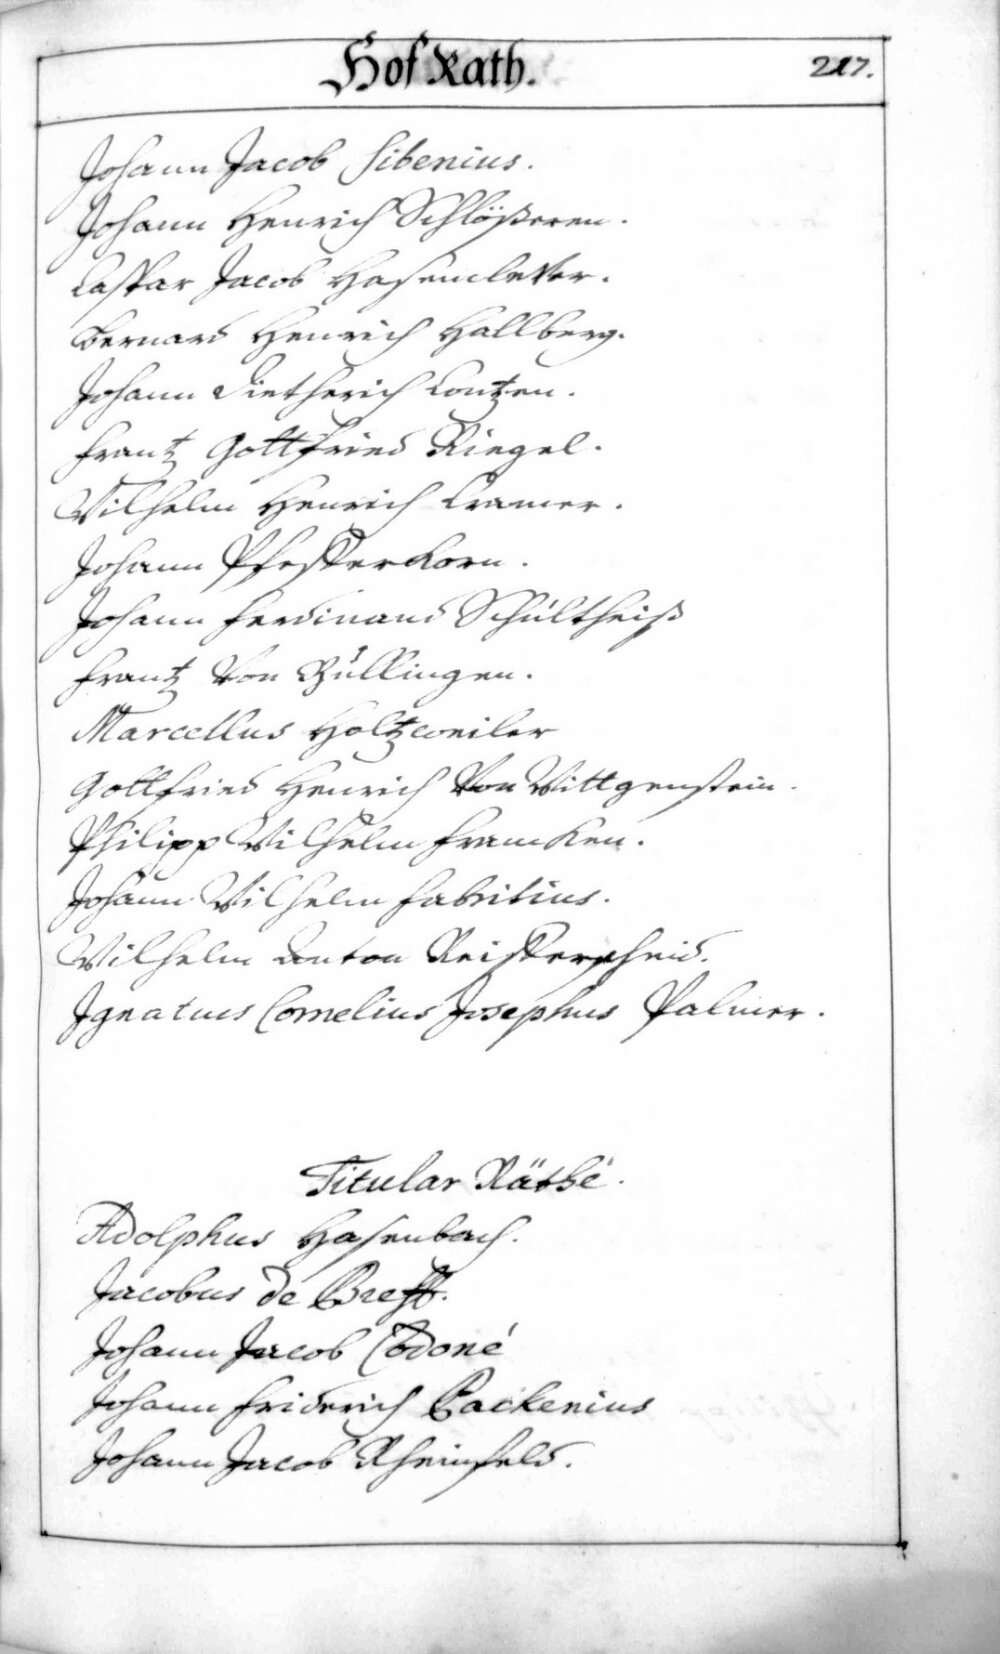 Hof Rath.
217.
Johann Jacob Sibenius.
Johann Henrich Schlößeren.
Caspar Jacob Hasenclever.
Bernard Henrich Hallberg.
Johann Dietherich Contzen.
Frantz Gottfried Riegel.
Wilhelm Henrich Cramer.
Johann Pfefferkorn.
Johann Ferdinand Schultheiß
Frantz von Büllingen.
Marcellus Holtzweiler
Gottfried Henrich von Wittgenstein.
Philipp Wilhelm Francken.
Johann Wilhelm Fabritius.
Wilhelm Anton Reifferscheid.
Ignatius Cornelius Josephus Palmer.
Titular Räthe.
Adolphus Hasenbach.
Jacobus de
Johann Jacob Codoné
Johann Friderich Packenius
Johann Jacob Rheinfeld.